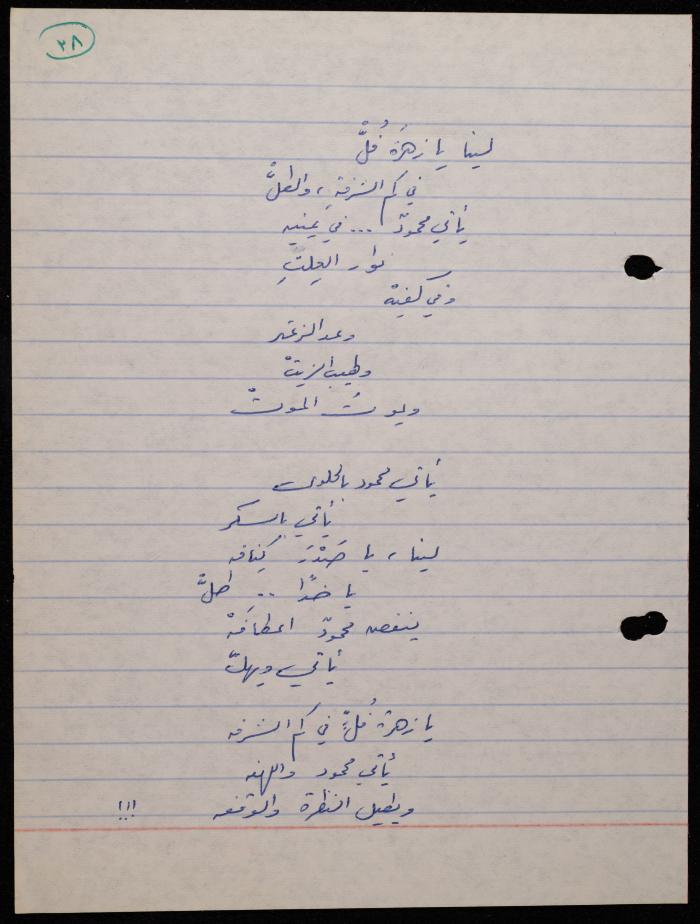 ٢٨
لينا يا زهرَة فُلّْ
في كم الشرفةِ، والطلّْ
يأتي محمودٌ ... في يمينه
نوار العِلتِ
وفي كفيهْ
وعد الزعتر
وطيب الزيتْ
ويموتُ الموتْ
يأتي محمود بالحلوى
يأتي بالسكر
لينا، يا صَدْرَ كِنافه
يا خدًا .. طلّْ
ينفض محمودٌ اعطافَهْ
يأتي ويهلّ
يا زهرة فُلٍّ في كم الشرفه
يأتي محمود واللهفه
ويطيل النظرة والوقفه !!!